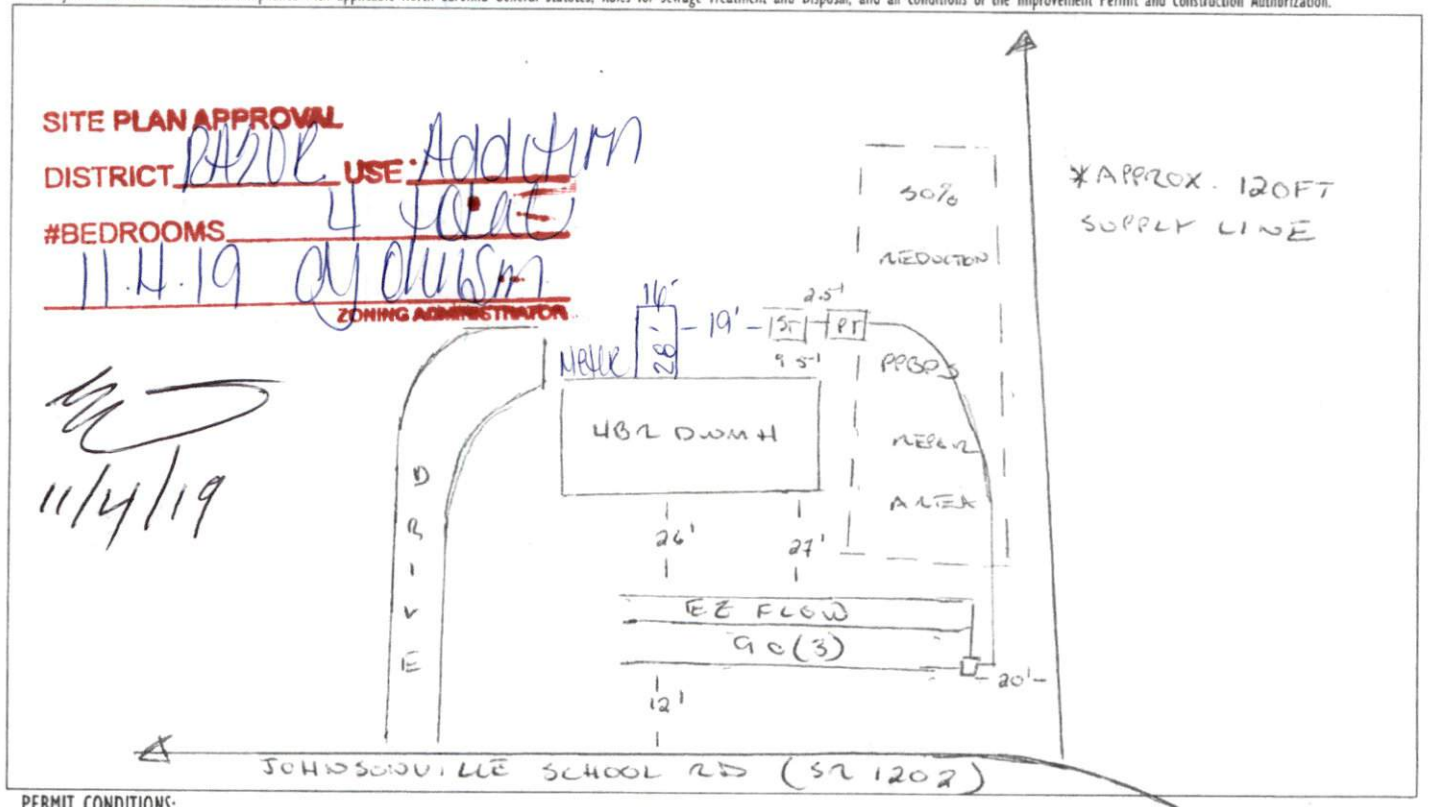 applicable North Carolina General Statutes, Rules for Sewage Treatment and Disposal, and all conditions of the Improvement Permit and Construction Authorization.
SITE PLAN APPROVAL
DISTRICT RA20R USE Addition
#BEDROOMS 4 total
11.4.19
ZONING ADMINISTRATOR
11/4/19
*APPROX. 120FT
SUPPLY LINE
50%
REDUCTION
PPBPS
REPAIR
AREA
16'
28'
-19'-
ST
2.5'
PT
9.5'
4BR DWMH
DRIVE
26'
27'
EZ FLOW
90(3)
-20'-
12'
JOHNSONVILLE SCHOOL RD (SR 1202)
PERMIT CONDITIONS: